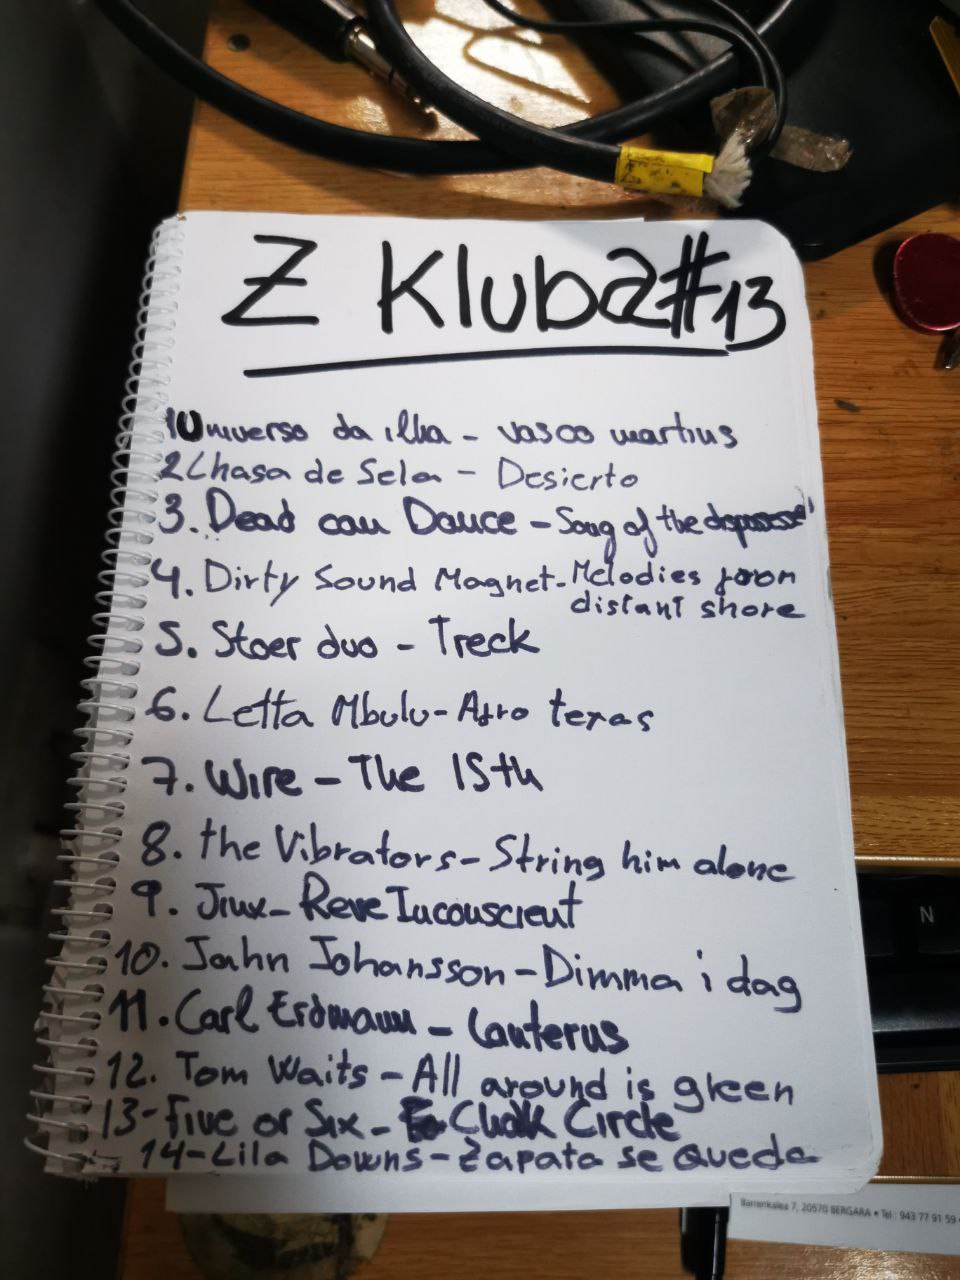 Z Kluba #13
1 Universo da ilha - vasco martins
2 Chasa de Sela - Desierto
3. Dead can Dance - Song of the
4. Dirty Sound Magnet - Melodies from
distant shore
5. Stoer duo - Treck
6. Letta Mbulu - Afro texas
7. Wire - The 15th
8. the Vibrators - String him alone
9. Jinx - Reve Inconscient
10. Jahn Johansson - Dimma i dag
11. Carl Erdmann - Lanterns
12. Tom Waits - All around is green
13 - Five or Six - Chalk Circle
14 - Lila Downs - Zapata se queda
N
Barrenkalea 7, 20570 BERGARA • Tel.: 943 77 91 59